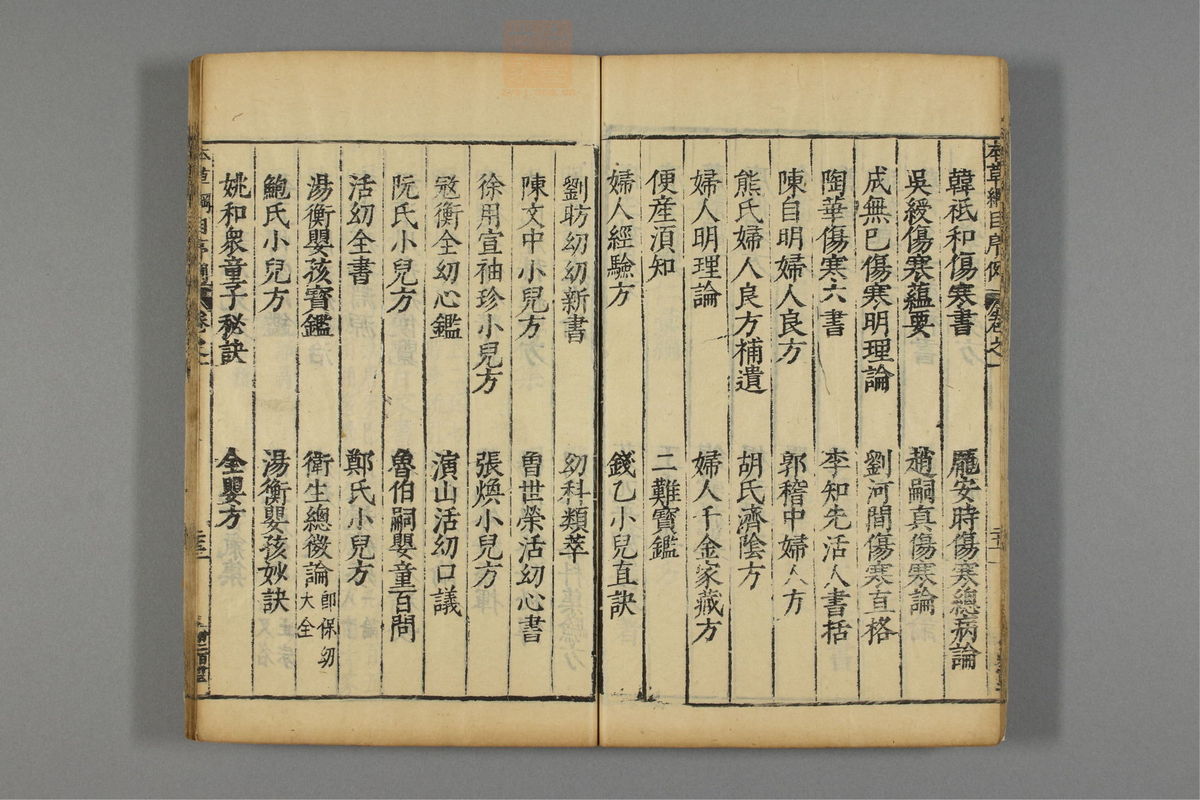 本草綱目序例 卷之一
韓祗和傷寒書 龐安時傷寒總病論
吳綬傷寒蘊要 趙嗣真傷寒論
成無已傷寒明理論 劉河間傷寒直格
陶華傷寒六書 李知先活人書括
陳自明婦人良方 郭稽中婦人方
熊氏婦人良方補遺 胡氏濟陰方
婦人明理論 婦人千金家藏方
便産須知 二難寶鑑
婦人經驗方 錢乙小兒直訣
劉昉幼幼新書 幼科類萃
陳文中小兒方 魯世榮活幼心書
徐用宣袖珍小兒方 張煥小兒方
冦衡全幼心鑑 演山活幼口議
阮氏小兒方 魯伯嗣嬰童百問
活幼全書 鄭氏小兒方
湯衡嬰孩寶鑑 衛生總微論即保幼大全
鮑氏小兒方 湯衡嬰孩妙訣
姚和衆童子秘訣 全嬰方
本草綱目序例 卷之一